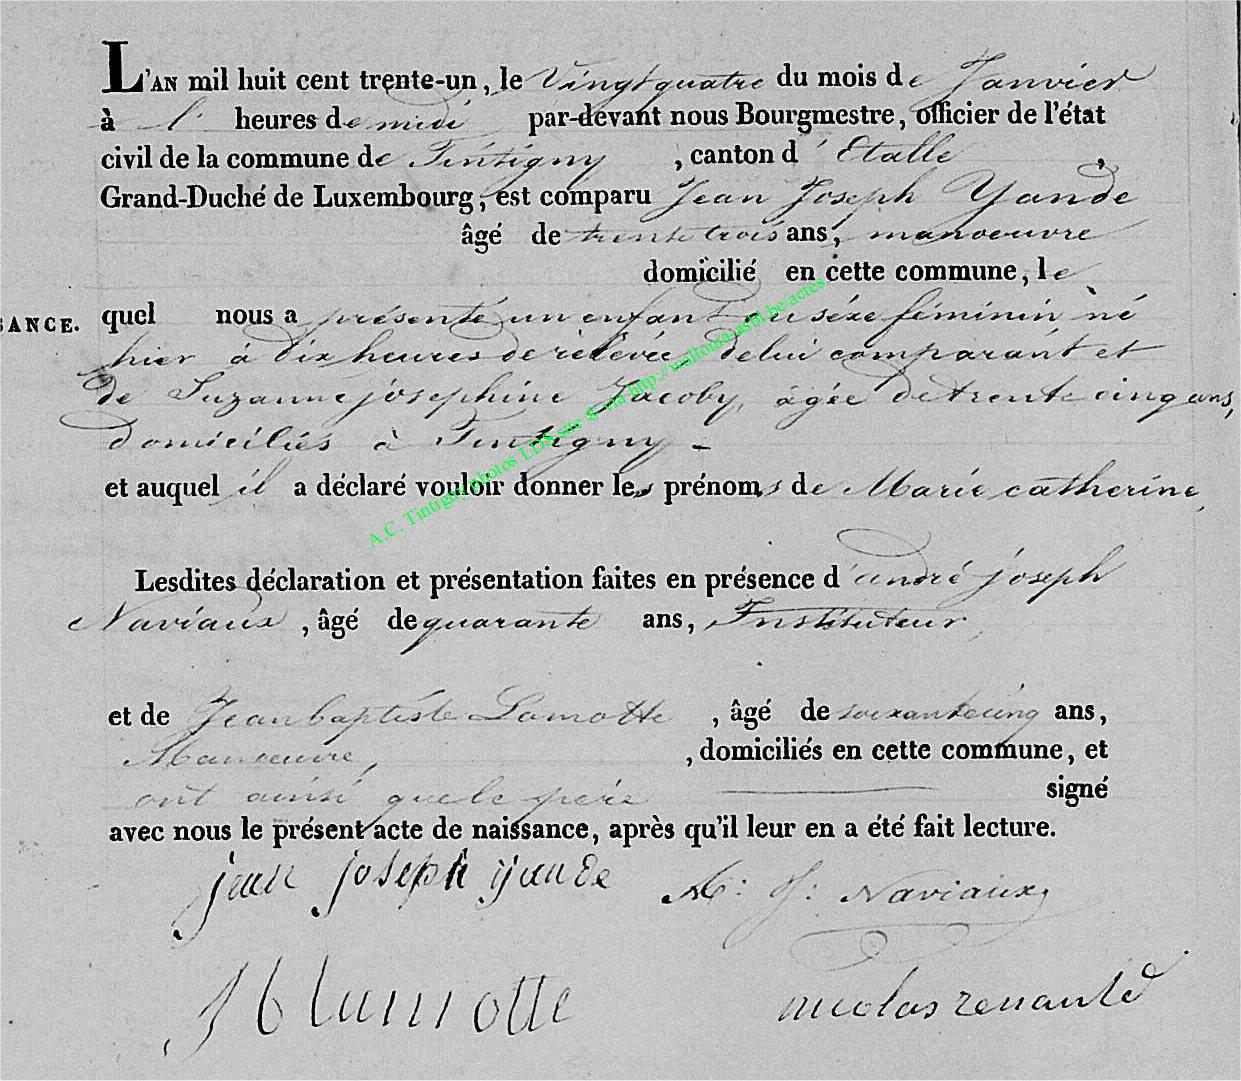 L'AN mil huit cent trente-un, le Vingt quatre du mois de Janvier
à l' heures de midi par-devant nous Bourgmestre, officier de l'état
civil de la commune de Tintigny , canton d' Etalle ,
Grand-Duché de Luxembourg, est comparu Jean Joseph Yande
âgé de trente trois ans, manoeuvre
domicilié en cette commune, le
SANCE. quel nous a présenté un enfant du séxe féminin né
hier à dix heures de relevée, de lui comparant et
de Suzanne joséphine Jacoby, âgée de trente cinq ans,
domiciliés à Tintigny -
et auquel il a déclaré vouloir donner les prénoms de Marie catherine,
A.C. Tintigny photos LDS site & via http://wallonia-asbl.be/actes
Lesdites déclaration et présentation faites en présence d'andré joseph
Naviaux , âgé de quarante ans, Instituteur,
et de Jean baptiste Lamotte , âgé de soixante cinq ans,
Manoeuvre, , domiciliés en cette commune, et
ont ainsi que le père signé
avec nous le présent acte de naissance, après qu'il leur en a été fait lecture.
jean joseph yande A: J: Naviaux
J b lamotte nicolas renauld